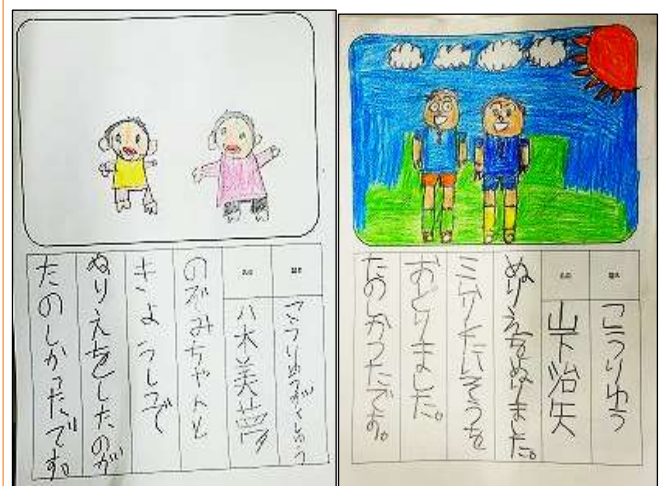 こうりゅうがくしゅう
八木美夢
のぞみちゃんと
きょうしつで
ぬりえをしたのが
たのしかったです。
こうりゆう
山下治矢
ぬりえをぬりました。
たいそうを
おどりました。
たのしかったです。